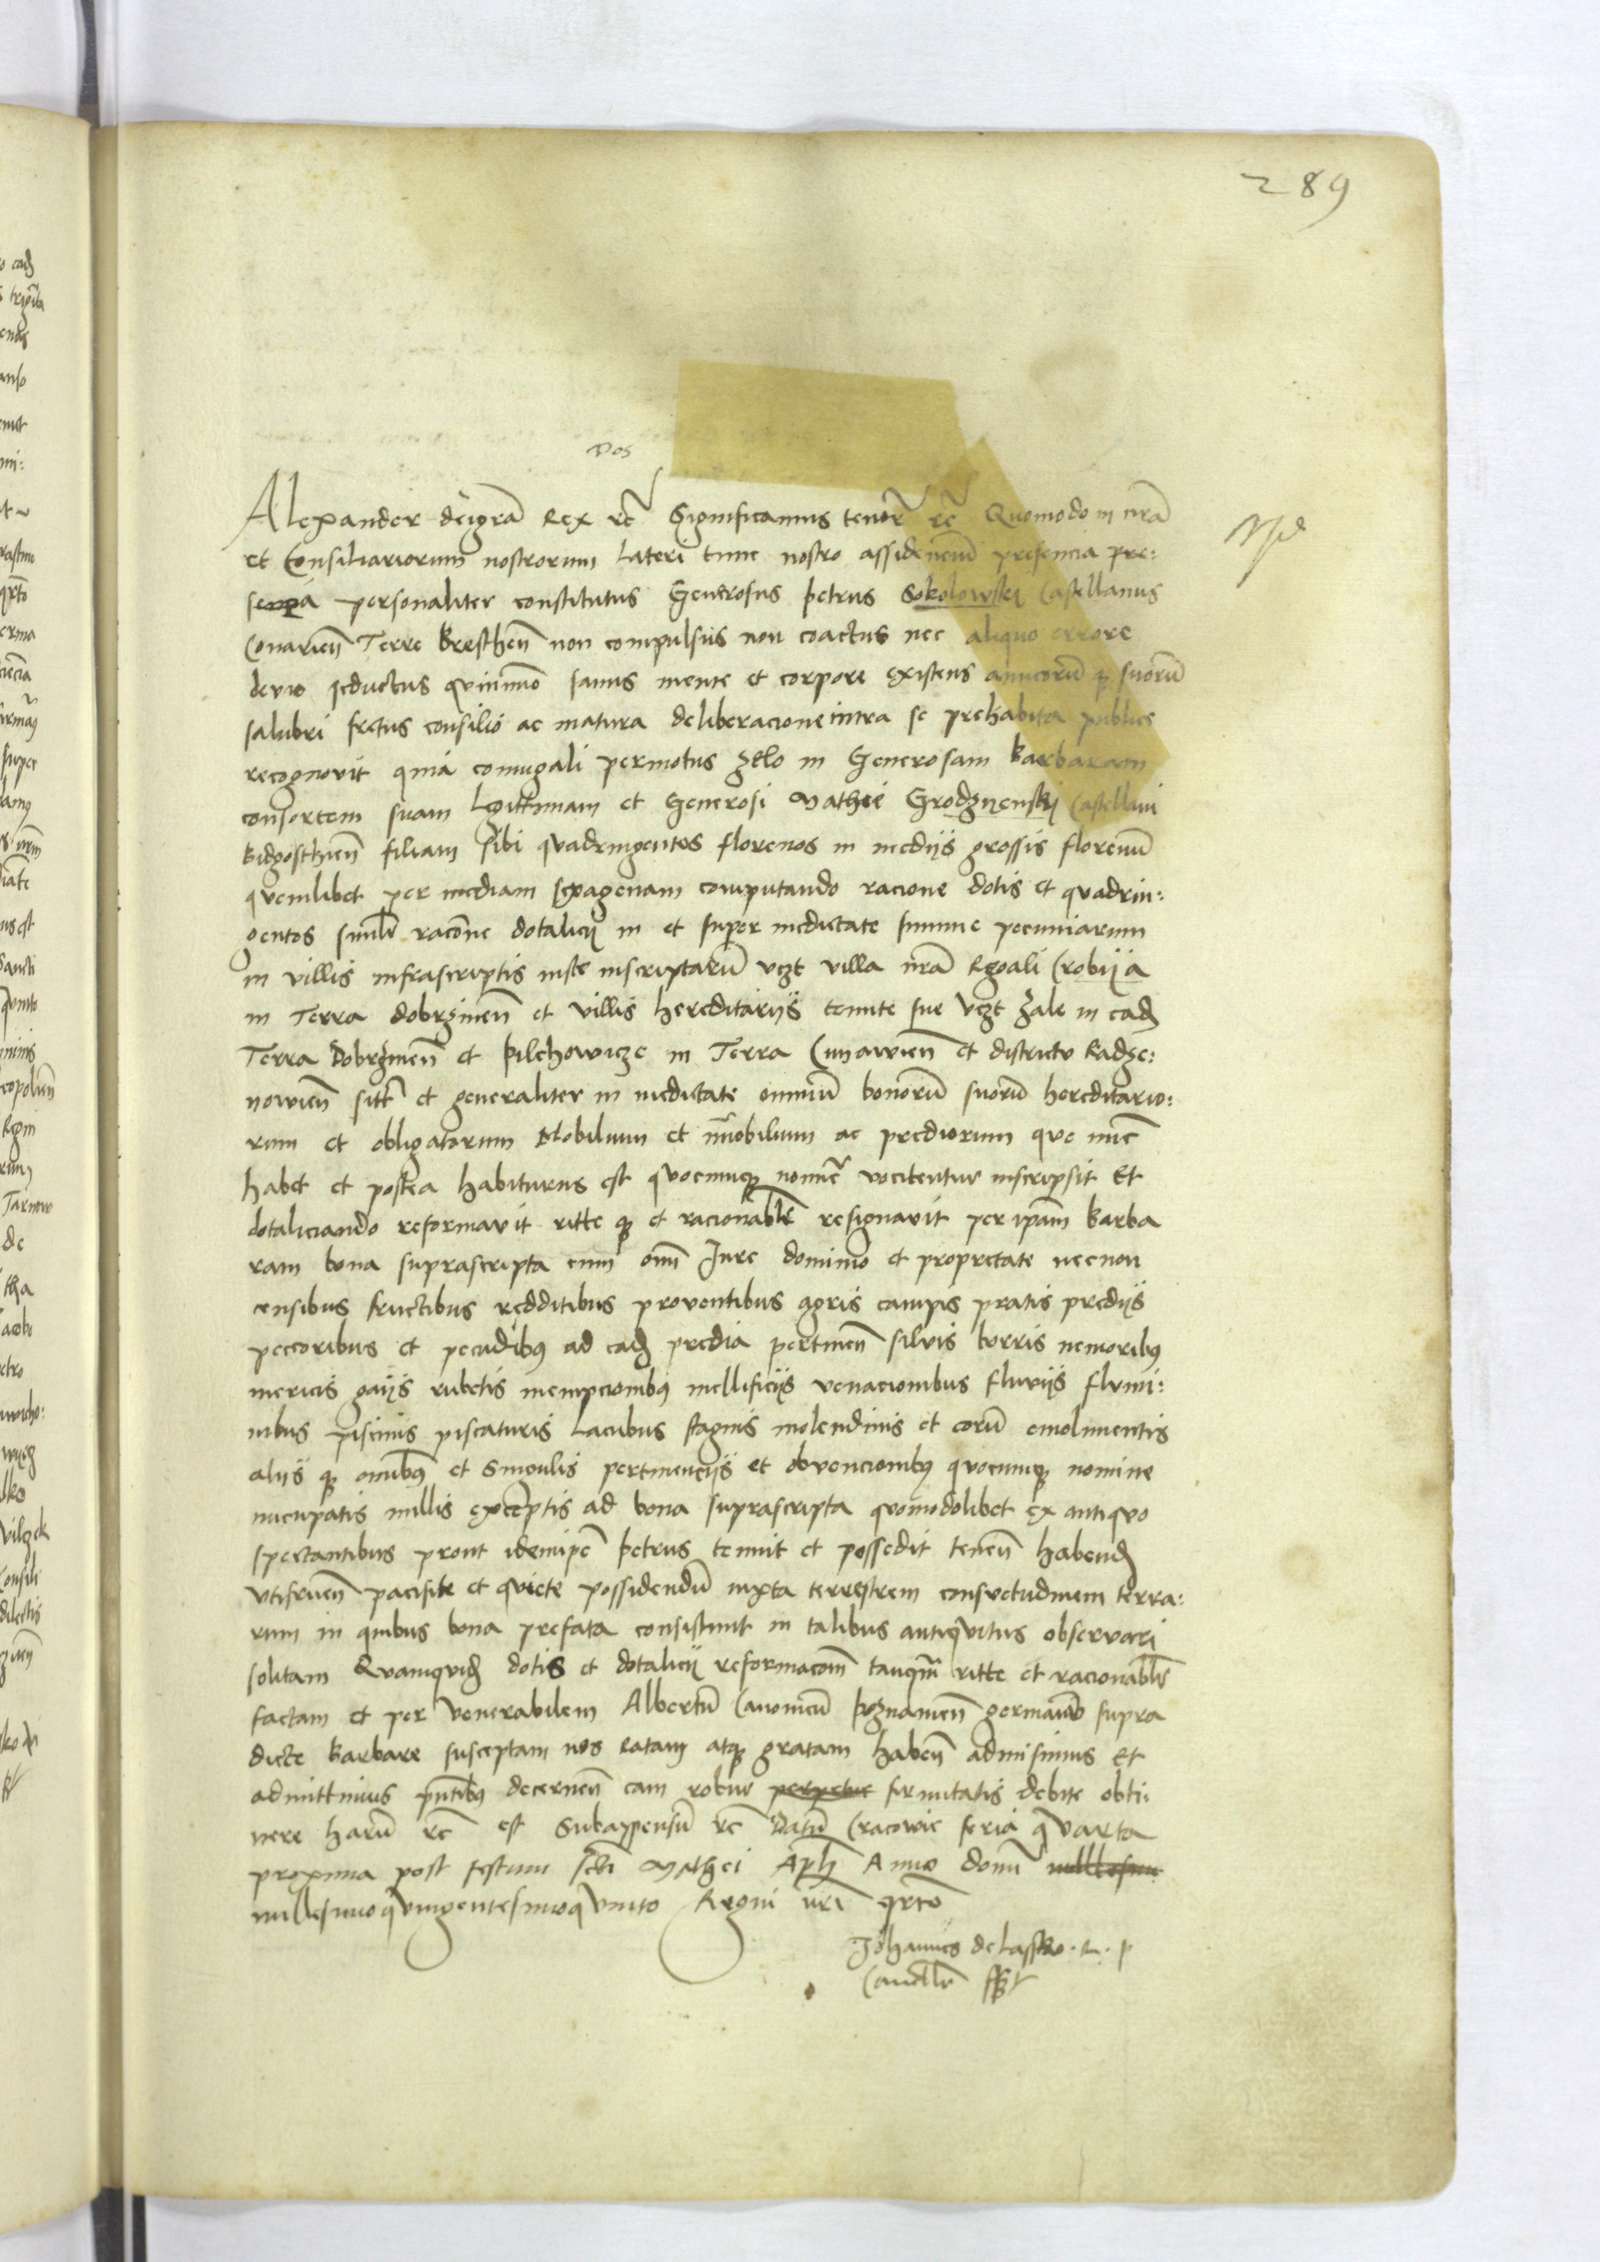 289
Dos
Alexander deigrā Rex rč Significamus tenorē rč Quomodo in nrā
et Consiliariorum nostrorum lateri tunc nostro assidenciū presencia pre:
sencia personaliter constitutus Generosus petrus Sokolowskij Castellanus
Conarieñ Terre bresthen̄ non compulsus non coactus nec aliquo errore
devio seductus quinimmo sanus mente et corpore existens amicorū qꝫ suorū
salubri fretus consilio ac matura deliberacione intra se prehabita publice
recognovit quia coniugali permotus zelo in Generosam barbaram
consortem suam Legittimam et Generosi Mathei Grodzyenskij Castellani
bidgosthien̄ filiam sibi quadringentos florenos in medijs grossis florenū
quemlibet per mediam sexagenam computando racione dotis et quadrin:
gentos similr̄ racōne dotalicij in et super medietate summe pecuniarum
in villis infrascriptis iuste inscriptarū vczt villa nrā Regali Crobija
in Terra dobrzinen̄ et villis hereditarijs tenute sue vczt zale in eadꝫ
Terra Dobrzinen̄ et pilchowicze in Terra Cuiawien̄ et districtu Radze:
nowien̄ sitꝭ et generaliter in medietate omniū bonorū suorū hereditario:
rum et obligatorum Mobilium et Īmobilium ac prediorum que nūc
habet et postea habiturus est quocumqꝫ nomīe vocitentur inscripsit Et
dotaliciando reformavit ritte qꝫ et racionablr̄ resignavit per ipsam barba
ram bona suprascripta cum omī Iure dominio et proprietate necnon
censibus fructibus redditibus proventibus agris campis pratis predijs
peccoribus et pecudibꝫ ad eadꝫ predia pertinen̄ silvis borris nemoribꝫ
mericis gaijs rubetis mempcionibꝫ mellificijs venacionibus fluvijs flumi:
nibus piscinis piscaturis Lacubus stagnis molendinis et eorū emolimentis
alijs qꝫ omībꝫ et Singulis pertinencijs et obvencionibꝫ quocumqꝫ nomine
nūcupatis nullis exceptis ad bona suprascripta quomodolibet ex antiquo
spectantibus prout idemipē petrus tenuit et possedit tenen̄ habendꝫ
utifruen̄ pacifice et quiete possidendū iuxta terrestrem consuetudinem terra:
rum in quibus bona prefata consistunt in talibus antiquitus observari
solitam Quamquidꝫ dotis et dotalicij reformacōm tanqᷓm ritte et racionablr̄
factam et per venerabilem Albertū Canonicū poznanien̄ germanū supra
dicte barbare susceptam nos ratam atqꝫ gratam haben̄ admisimus Et
admittimus pntībꝫ decernen̄ eam robur perpetue firmitatis debite obti:
nere harū rč est Subappensū rč Datū Cracovie feria quarta
proxima post festum scti Mathei Aplī Anno domī millesimo
millesimoquingentesimoquinto Regni nrī qrto
Johannes de Lassko . R . p
Cancellr̄ sszt